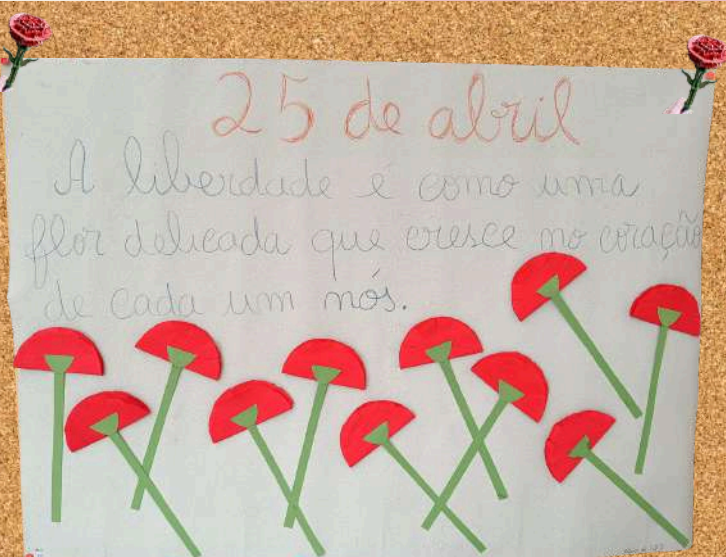 25 de abril
A liberdade é como uma
flor delicada que cresce no coração
de cada um nós.